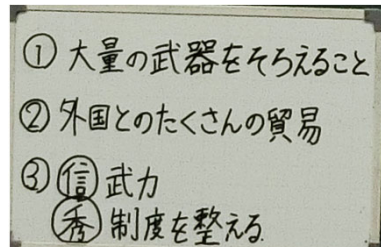 ① 大量の武器をそろえること
② 外国とのたくさんの貿易
③ ㊋信 武力
秀 制度を整える